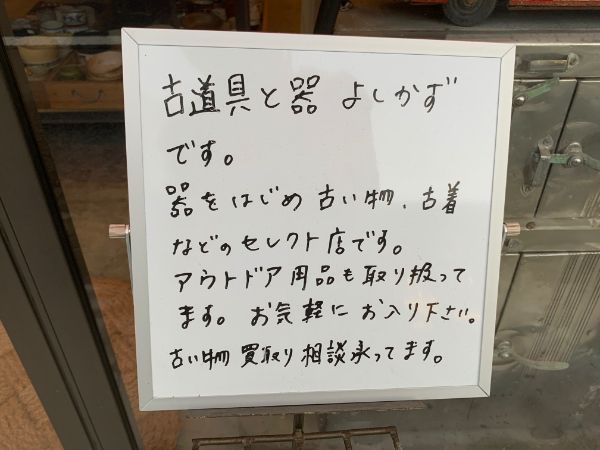 古道具と器 よしかず
です。
器をはじめ古い物、古着
などのセレクト店です。
アウトドア用品も取り扱って
ます。お気軽にお入り下さい。
古い物買取り相談承ってます。